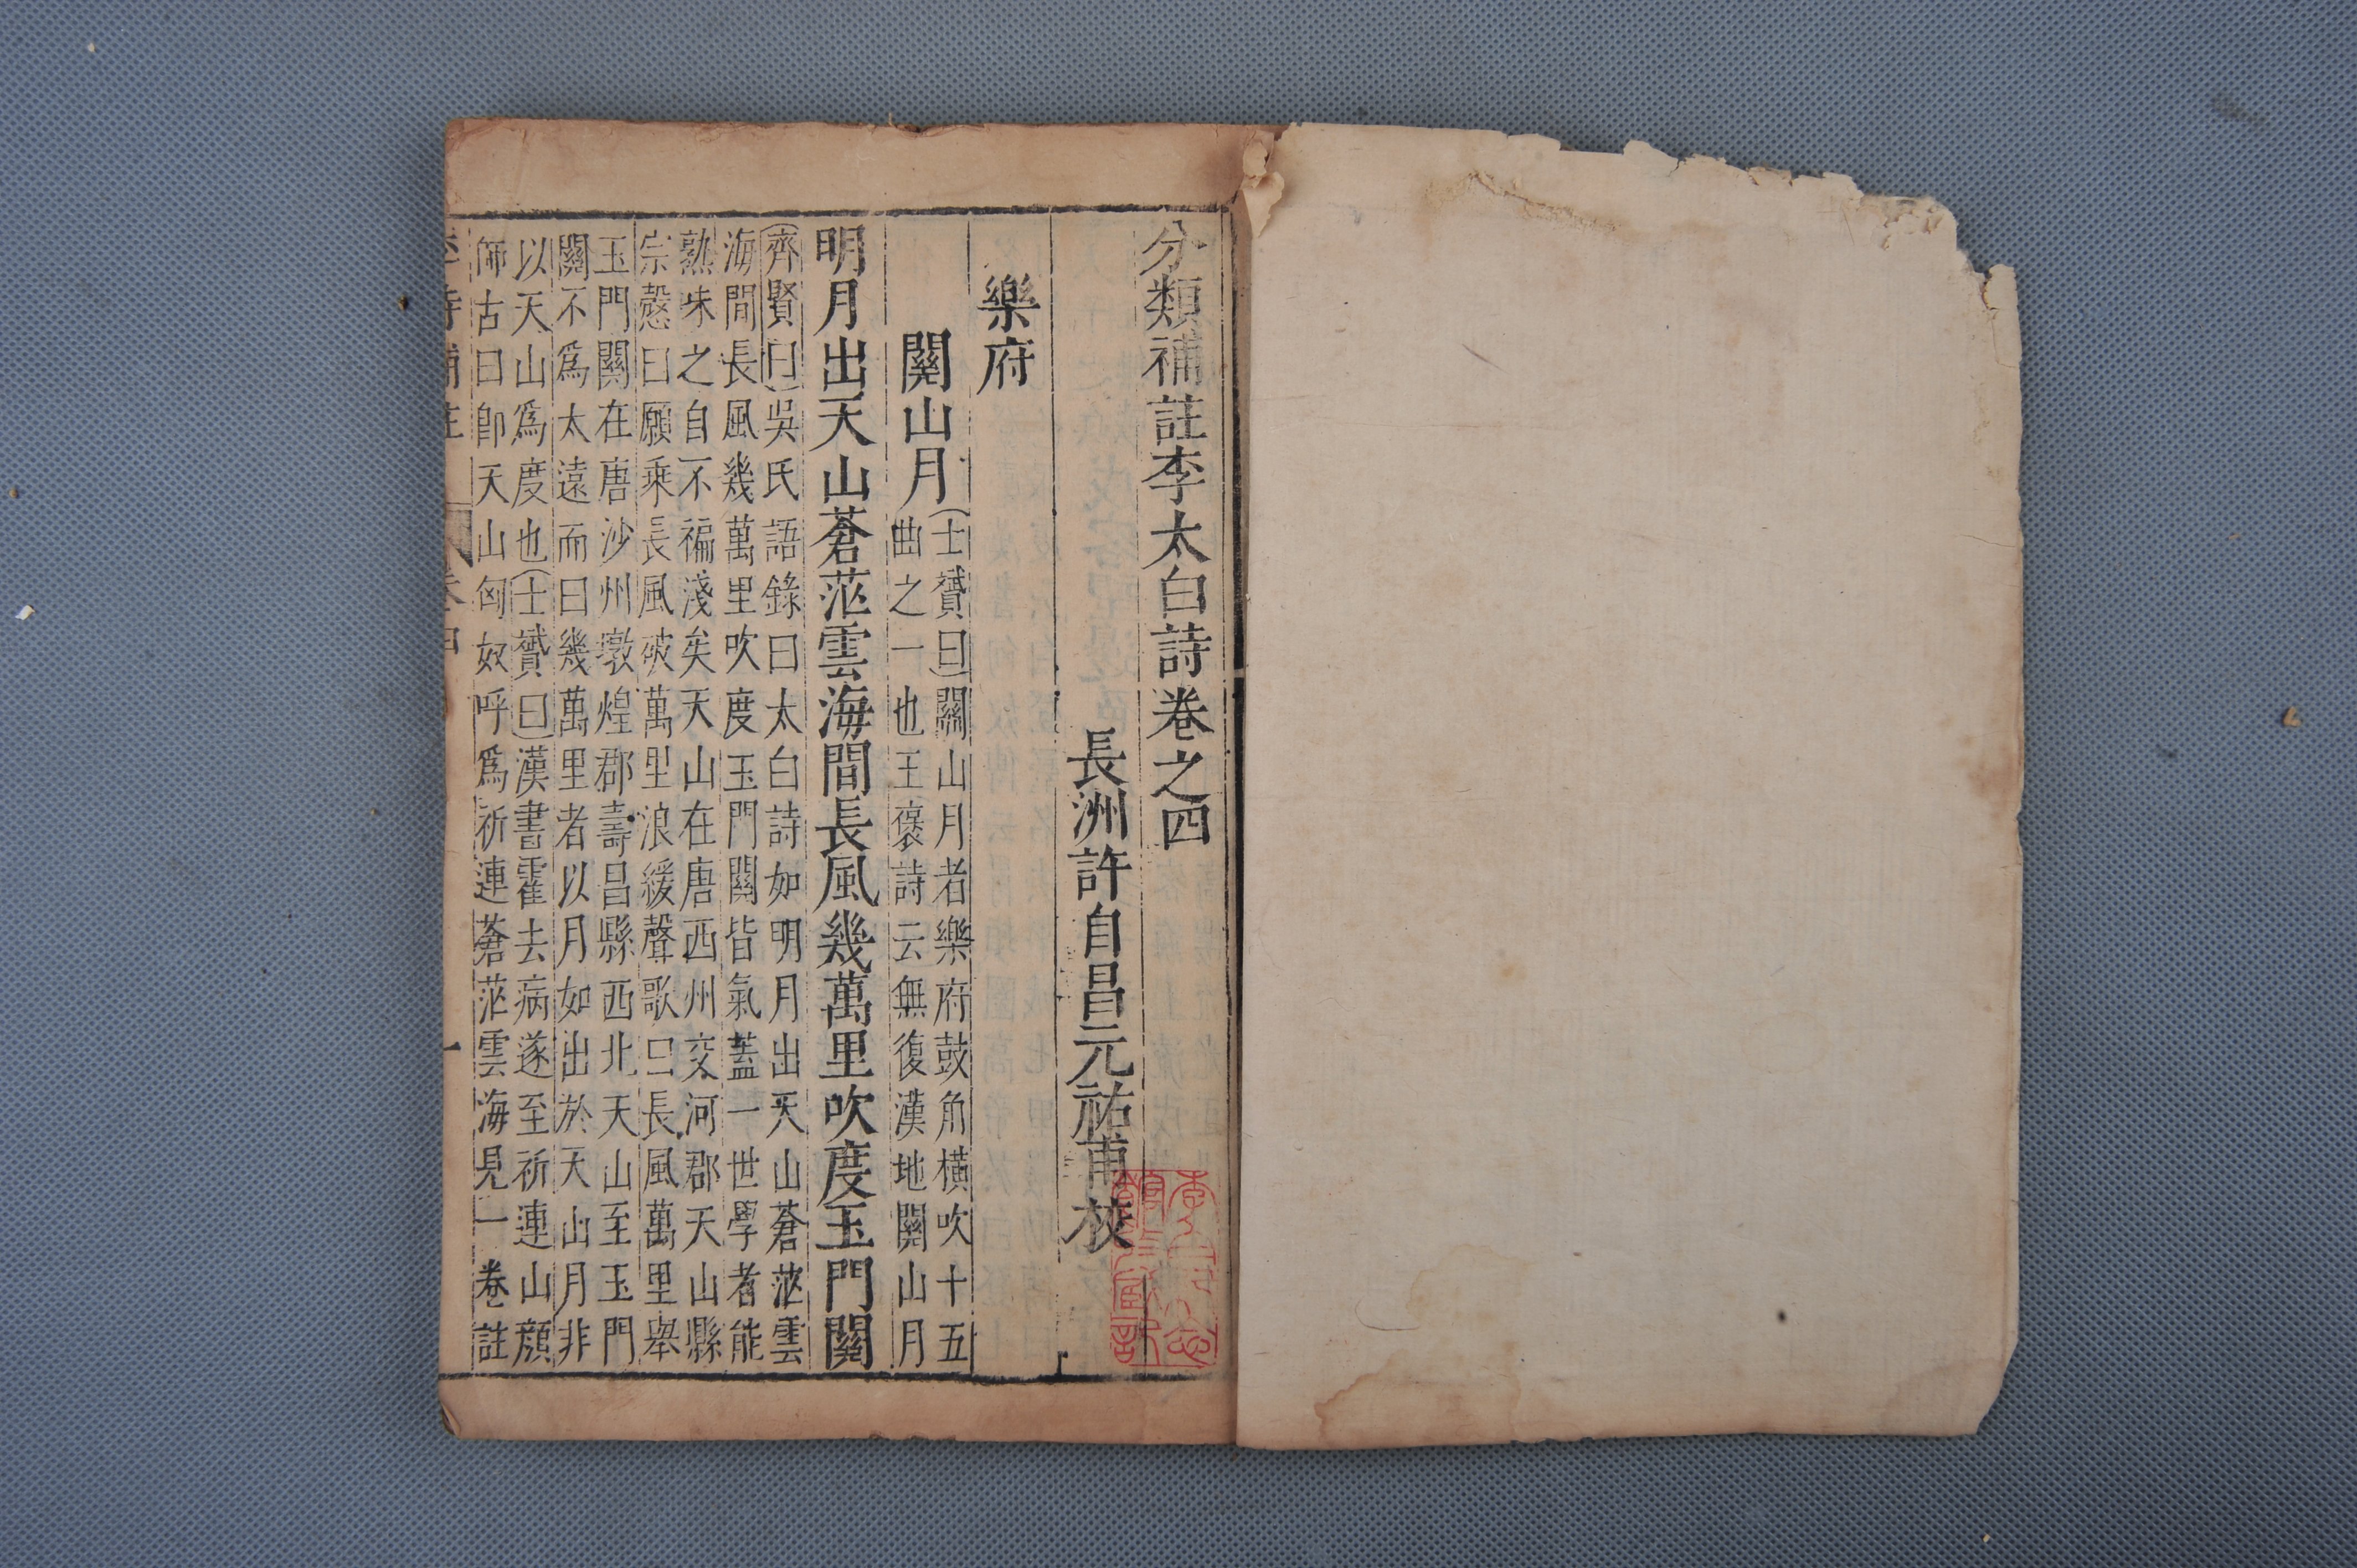 分類補註李太白詩卷之四
長洲許自昌元祐甫校
樂府
關山月
士贇曰關山月者樂府鼓角橫吹十五
曲之一也王褒詩云無復漢地關山月
明月出天山蒼茫雲海間長風幾萬里吹度玉門關
齊賢曰吳氏語錄曰太白詩如明月出天山蒼茫雲
海間長風幾萬里吹度玉門關皆氣蓋一世學者能
熟味之自不褊淺矣天山在唐西州交河郡天山縣
宗愨曰願乘長風破萬里浪緩聲歌曰長風萬里舉
玉門關在唐沙州燉煌郡壽昌縣西北天山至玉門
關不爲太遠而曰幾萬里者以月如出於天山月非
以天山爲度也士贇曰漢書霍去病遂至祈連山顏
師古曰即天山匈奴呼爲祈連蒼茫雲海見一卷註